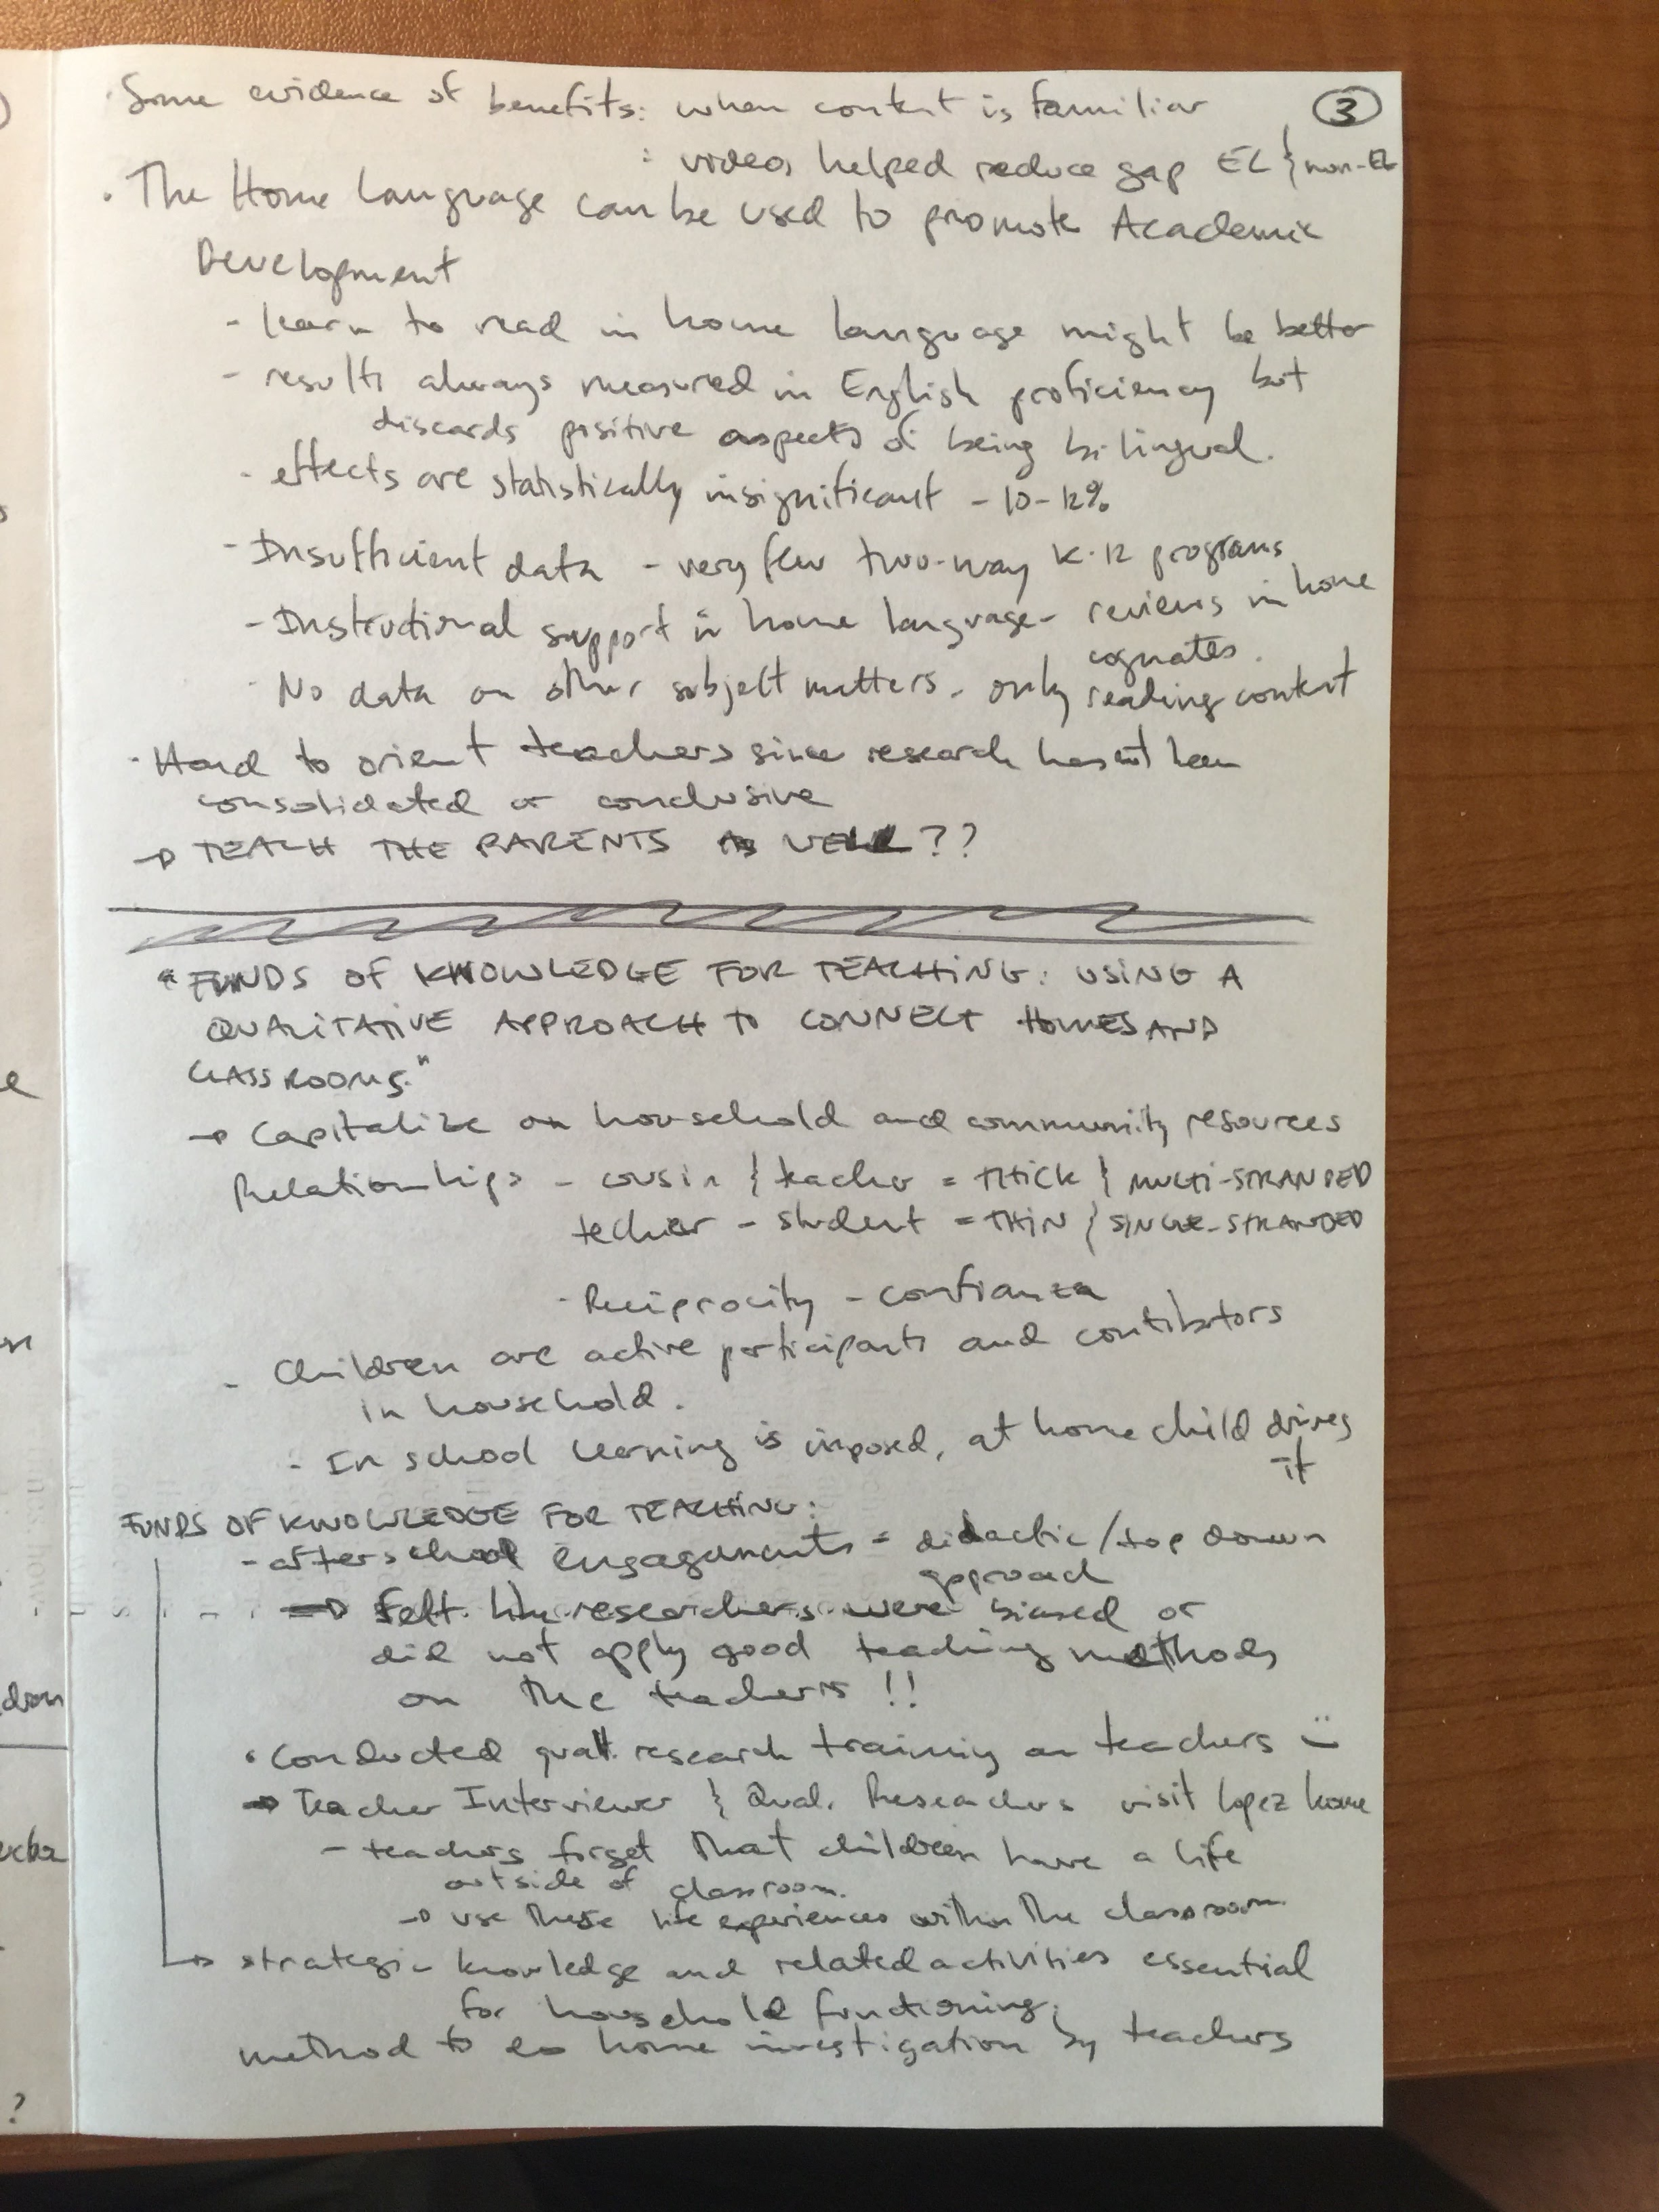 · Some evidence of benefits: when content is familiar
3
: videos helped reduce gap EL } non-EL
· The Home Language can be used to promote Academic
Development
- learn to read in home language might be better
- results always measured in English proficiency but
discards positive aspects of being bilingual.
- effects are statistically insignificant - 10-12%
- Insufficient data - very few two-way K-12 programs
- Instructional support in home language - reviews in home
cognates.
- No data on other subject matters - only reading content
· Hard to orient teachers since research has not been
consolidated or conclusive
→ TEACH THE PARENTS AS WELL ??
"FUNDS OF KNOWLEDGE FOR TEACHING: USING A
QUALITATIVE APPROACH TO CONNECT HOMES AND
CLASSROOMS."
→ Capitalize on household and community resources
Relationships - cousin } teacher = THICK } MULTI-STRANDED
techer - student = THIN } SINGLE-STRANDED
- Reciprocity - confianza
- Children are active participants and contibutors
in household.
- In school learning is imposed, at home child drives
it
FUNDS OF KNOWLEDGE FOR TEACHING:
- afterschool engagements = didactic/top down
approach
⇒ Felt like researchers were biased or
did not apply good teaching methods
on the teachers !!
· Conducted qualt. research training on teachers :)
→ Teacher Interviewer } Qual. Researchers visit Lopez home
- teachers forget that children have a life
outside of classroom.
→ use these life experiences within the classroom
→ strategic knowledge and related activities essential
for household functioning.
method to do home investigation by teachers